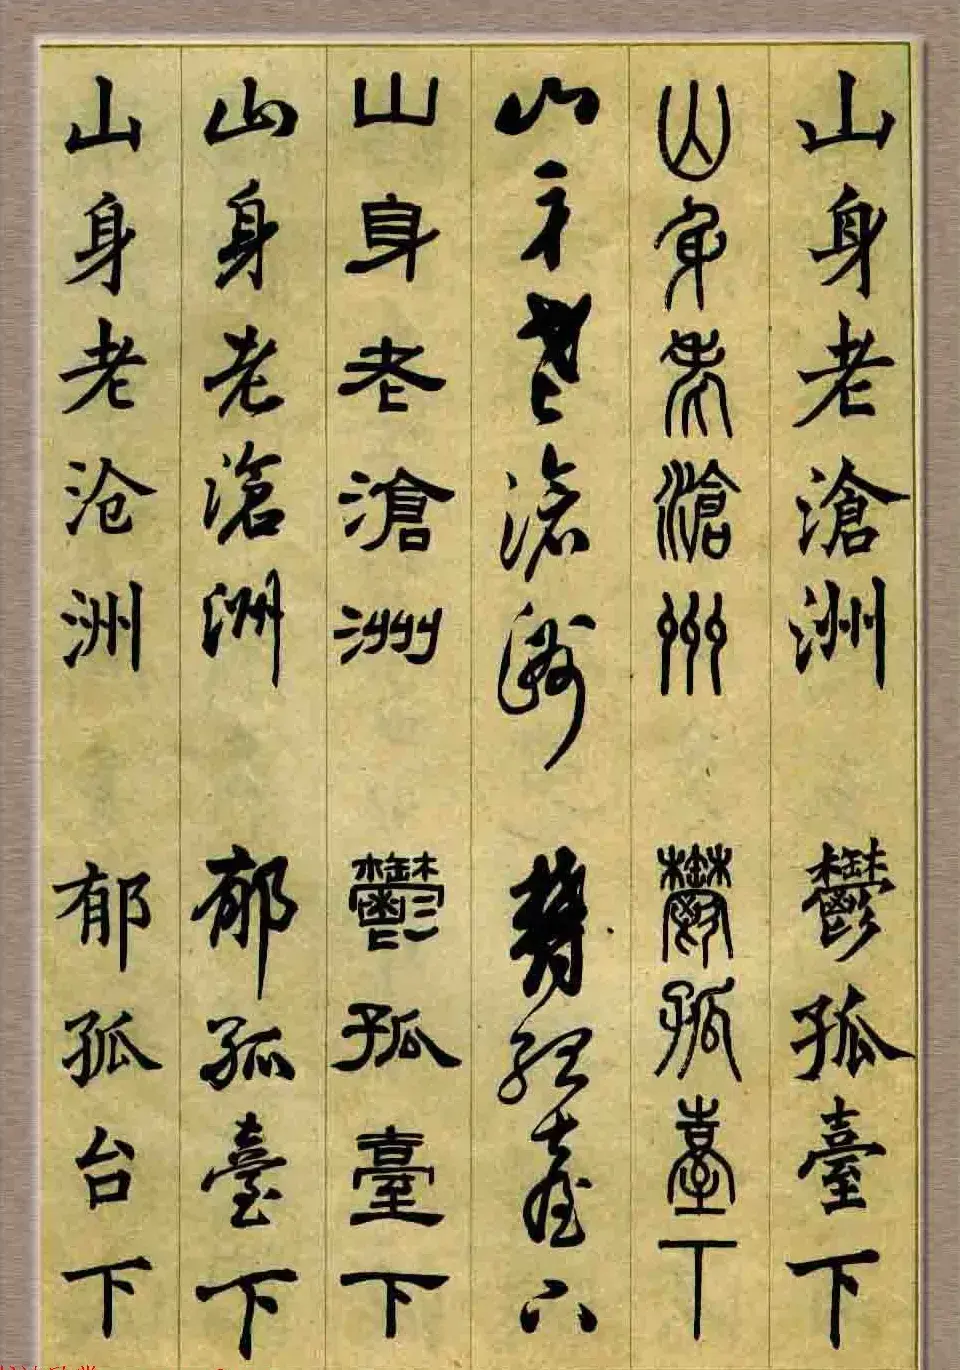 山身老滄洲 鬱孤臺下
山身老滄洲 鬱孤臺下
山身老滄洲 鬱孤臺下
山身老滄洲 鬱孤臺下
山身老滄洲 郁孤臺下
山身老沧洲 郁孤台下